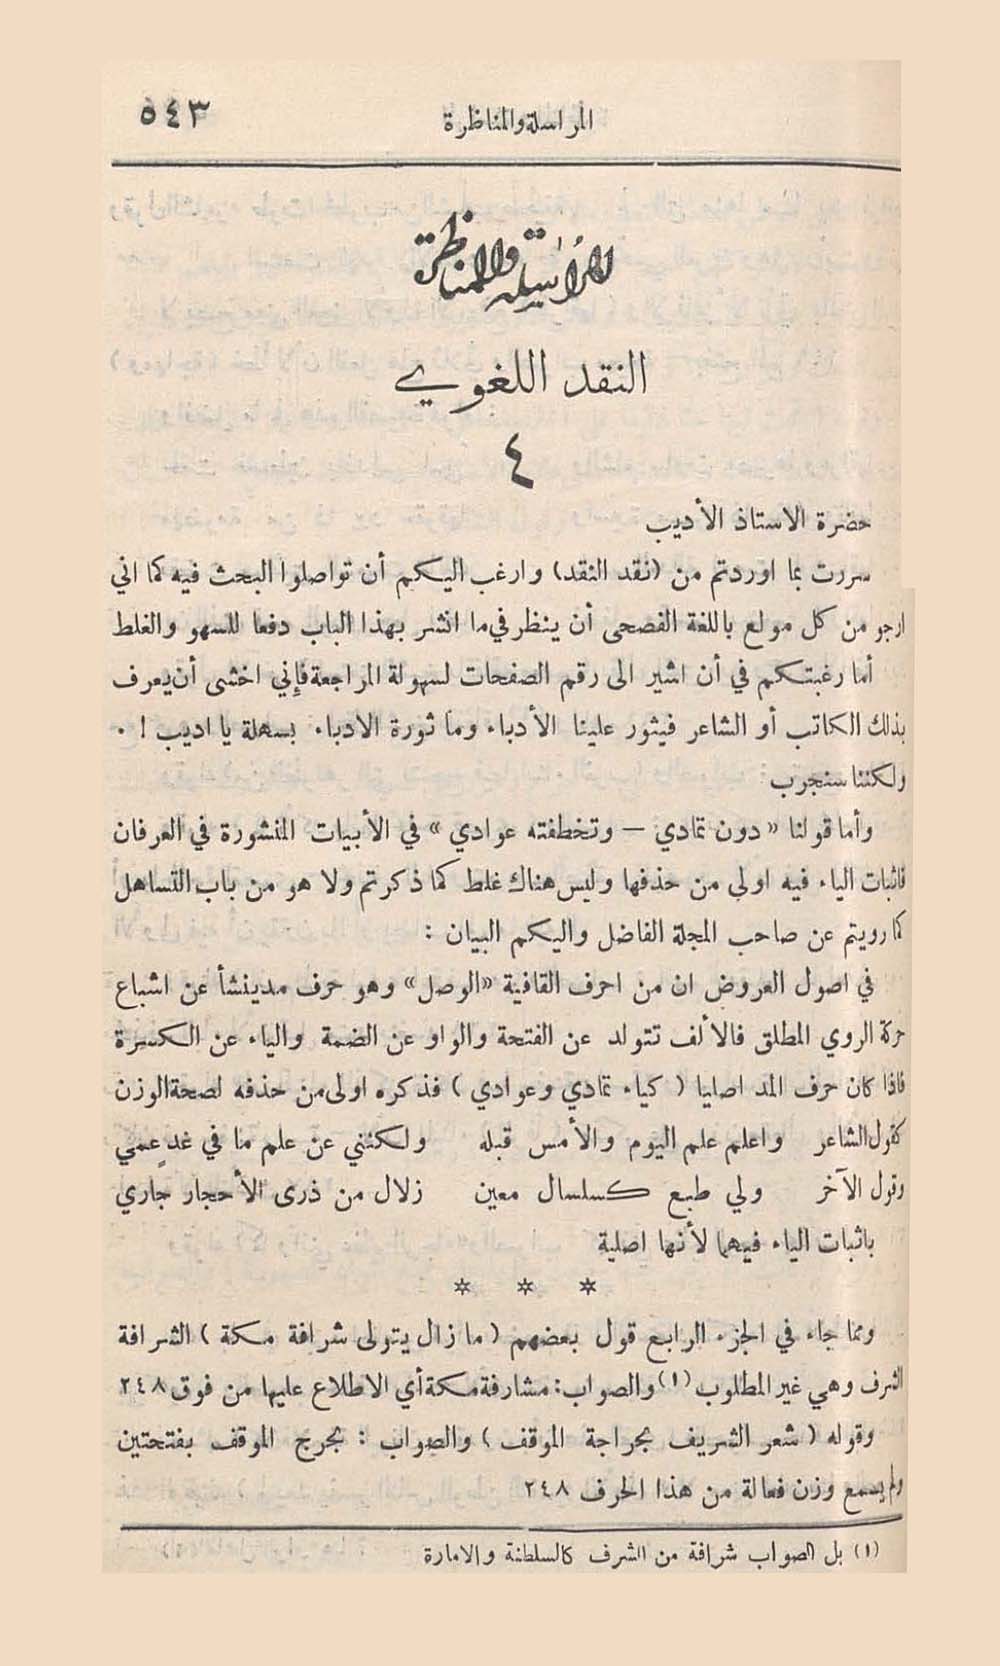 المراسلة والمناظرة
٥٤٣
المراسلة والمناظرة
النقد اللغوي
٤
حضرة الاستاذ الأديب
سررت بما اوردتم من (نقد النقد) وارغب اليكم أن تواصلوا البحث فيه كما اني
ارجو من كل مولع باللغة الفصحى أن ينظر في ما انشر بهذا الباب دفعا للسهو والغلط
أما رغبتكم في أن اشير الى رقم الصفحات لسهولة المراجعة فإني اخشى أن يعرف
بذلك الكاتب أو الشاعر فيثور علينا الأدباء وما ثورة الادباء بسهلة يا اديب ! .
ولكننا سنجرب
وأما قولنا « دون تمادي — وتخطفته عوادي » في الأبيات المنشورة في العرفان
فاثبات الياء فيه اولى من حذفها وليس هناك غلط كما ذكرتم ولا هو من باب التساهل
كما رويتم عن صاحب المجلة الفاضل واليكم البيان :
في اصول العروض ان من احرف القافية «الوصل» وهو حرف مد ينشأ عن اشباع
حركة الروي المطلق فالألف تتولد عن الفتحة والواو عن الضمة والياء عن الكسرة
فاذا كان حرف المد اصليا ( كياء تمادي وعوادي ) فذكره اولى من حذفه لصحة الوزن
كقول الشاعر واعلم علم اليوم والأمس قبله ولكنني عن علم ما في غد عمي
وقول الآخر ولي طبع كسلسال معين زلال من ذرى الأحجار جاري
باثبات الياء فيهما لأنها اصلية
* * *
ومما جاء في الجزء الرابع قول بعضهم ( ما زال يتولى شرافة مكة ) الشرافة
الشرف وهي غير المطلوب (١) والصواب : مشارفة مكة أي الاطلاع عليها من فوق ٢٤٨
وقوله ( شعر الشريف بجراجة الموقف ) والصواب : بجرج الموقف بفتحتين
ولم يسمع وزن فعالة من هذا الحرف ٢٤٨
(١) بل الصواب شرافة من الشرف كالسلطنة والامارة